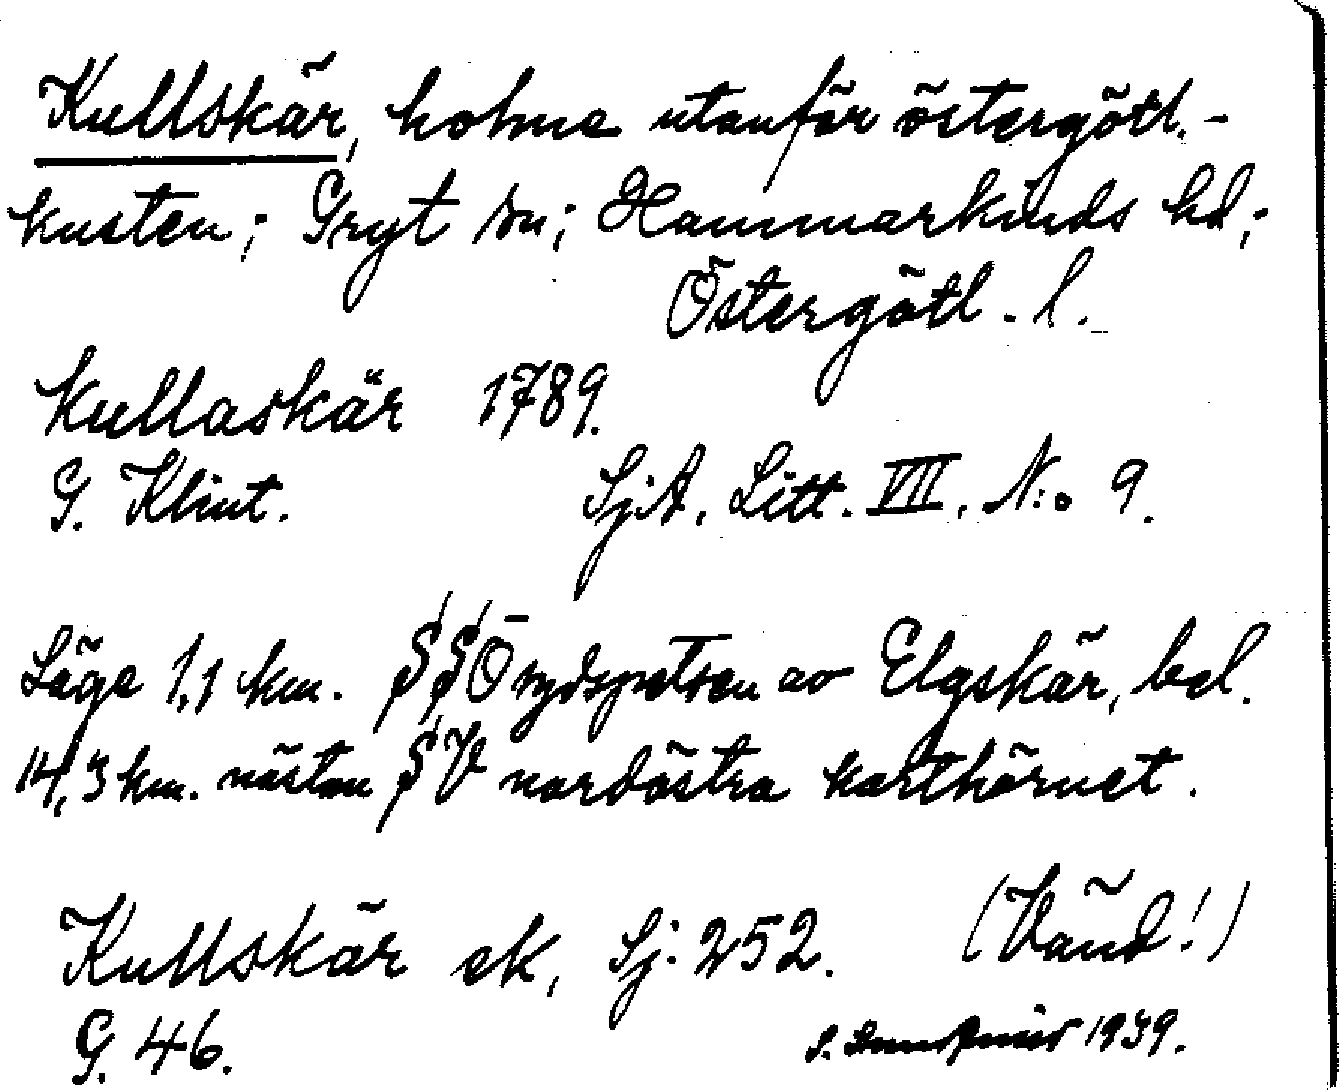 Kullskär, holme utanför östergötl.-
kusten; Gryt sn; Hammarkinds hd;
Östergötl. l.
Kullaskär 1789.
G. Klint. SjA. Litt. VII. N:o 9.
Läge 1,1 km. SSÖ sydspetsen av Elgskär, bel.
14,3 km. nästan SV nordöstra karthörnet.
Kullskär ek, Sj. 252. (Vänd!)
G. 46. 1939.